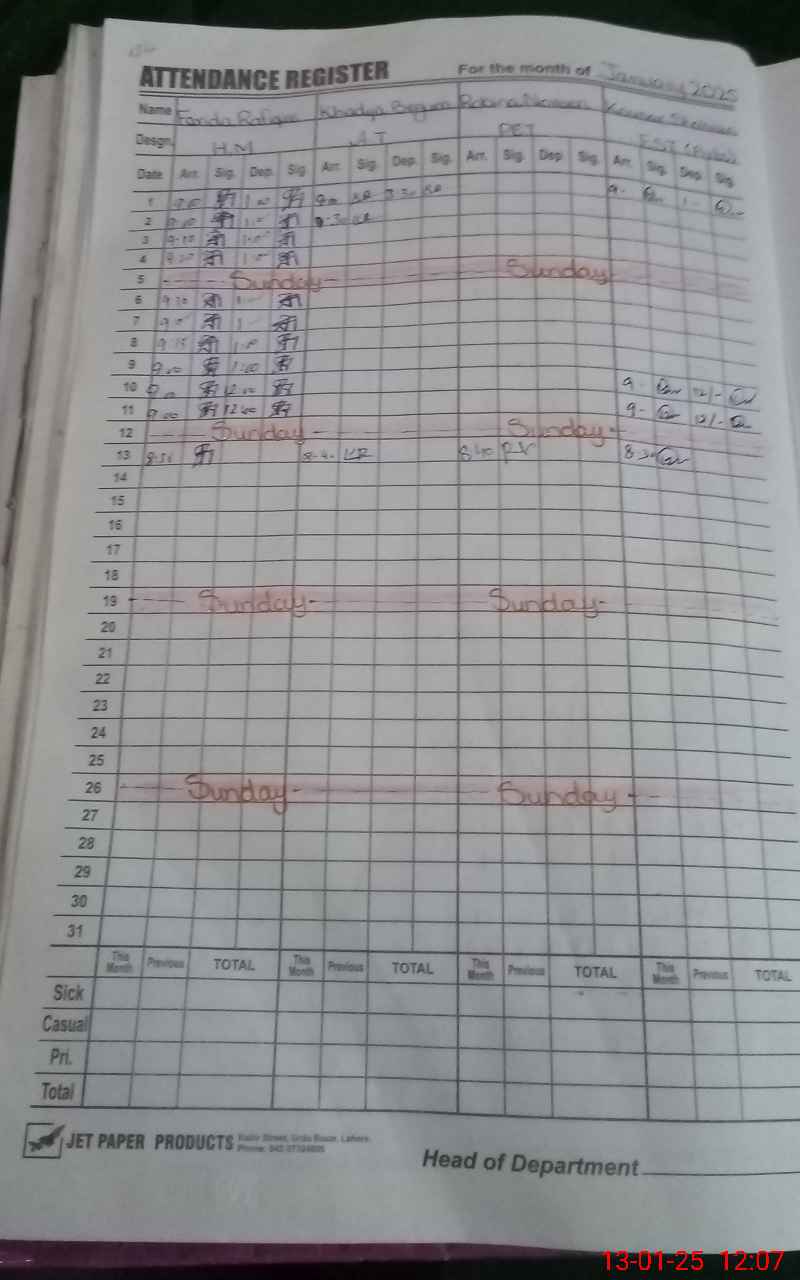 ATTENDANCE REGISTER For the month of January 2025
Name Farida Rafique Khadija Begum Rubina Nasreen Kausar Shaheen
Desgn. H.M A T PET EST
Date Arr. Sig. Dep. Sig. Arr. Sig. Dep. Sig. Arr. Sig. Dep. Sig. Arr. Sig. Dep. Sig.
1 9.00 1.00 9.00 KR 3.30 KR 9- 1-
2 9.00 1.0 9.30 KR
3 9.15 1.00
4 9.20 1.0
5 Sunday Sunday
6 9.10 1-
7 9.0 1-
8 9.15 1.0
9 9.00 1:00
10 9.00 12.00 9- 12/-
11 9.00 12.00 9- 12/-
12 Sunday Sunday
13 8.50 8.4. KR 8.40 R.N 8.30
14
15
16
17
18
19 Sunday Sunday
20
21
22
23
24
25
26 Sunday Sunday
27
28
29
30
31
This Month Previous TOTAL This Month Previous TOTAL This Month Previous TOTAL This Month Previous TOTAL
Sick
Casual
Pri.
Total
JET PAPER PRODUCTS Kabir Street, Urdu Bazar, Lahore.
Phone: 042-
Head of Department
13-01-25 12:07